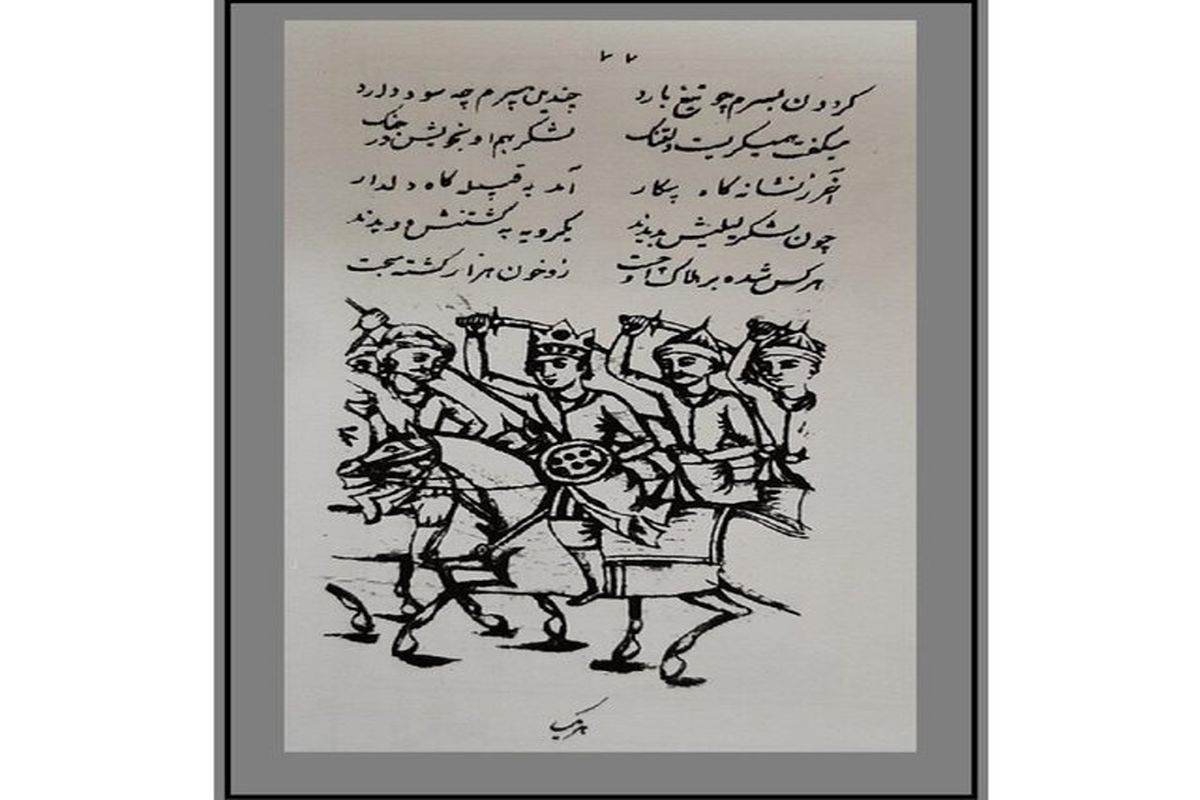 ۲۷
کردون بسرم چو تیغ بارد چندین سپرم چه سود دارد
میکفت همیکریست دلتنک لشکر بهم او بخویش در جنک
آخر ز نشانه کاه پیکار آمد به قبیله کاه دلدار
چون لشکر لیلیش بدیدند یکرویه به کشتنش دویدند
هر کس شده بر هلاک او زو خون هزار کشته
هر یک